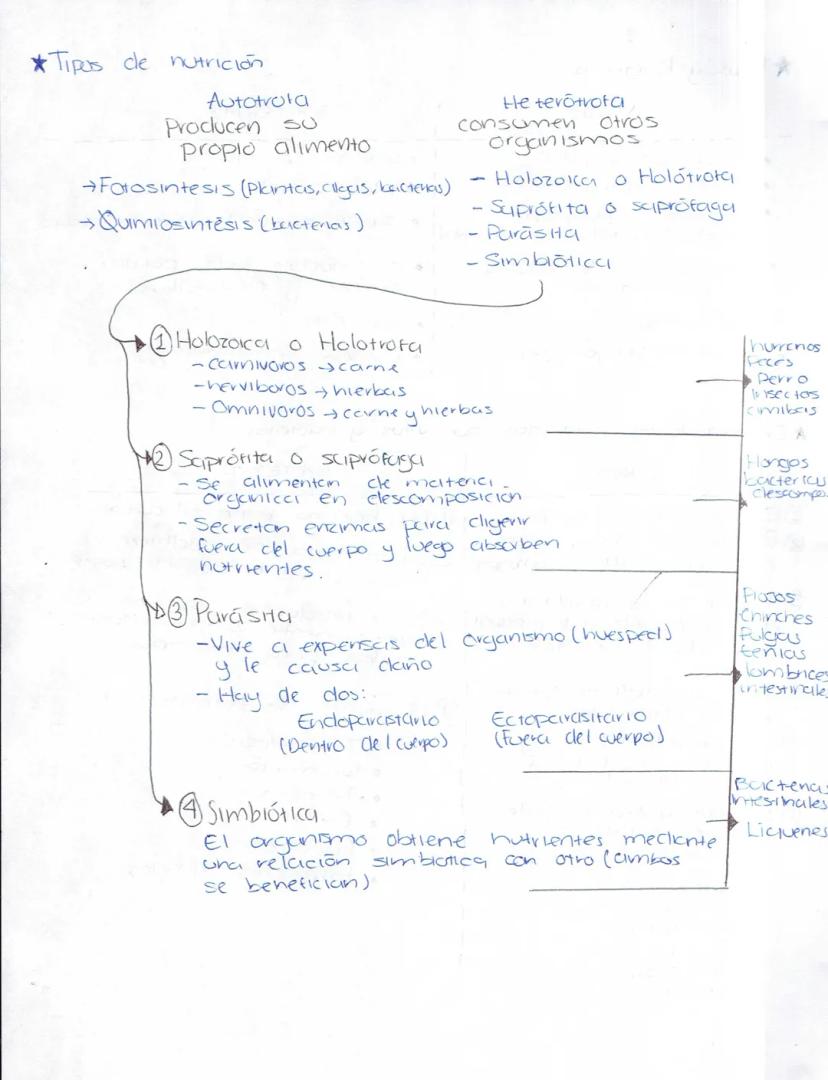 ★ Tipos de nutrición
Autotrofa
Producen su
propio alimento
→ Fotosintesis (Plantas, algas, bacterias)
→ Quimiosintésis (bacterias)
Heterótrofa
consumen otros
organismos
- Holozoica o Holótrofa
- Saprófita o saprófaga
- Parásita
- Simbiótica
① Holozoica o Holotrofa
- carnivoros → carne
- herviboros → hierbas
- Omnivoros → carne y hierbas
humanos
Peces
Perro
insectos
amibas
② Saprófita o saprófaga
- Se alimentan de materia
organica en descomposición
- Secretan enzimas para digerir
fuera del cuerpo y luego absorben
nutrientes.
Hongos
bacterias
descompo
③ Parásita
- Vive a expensas del organismo (huesped)
y le causa daño
- Hay de dos:
Endoparasitario
(Dentro del cuerpo)
Ectoparasitario
(Fuera del cuerpo)
Piojos
Chinches
Pulgas
tenias
lombrices
intestinale
④ Simbiótica.
El organismo obtiene nutrientes mediante
una relación simbiotica con otro (ambos
se benefician)
Bacterias
intesinales
Liquenes